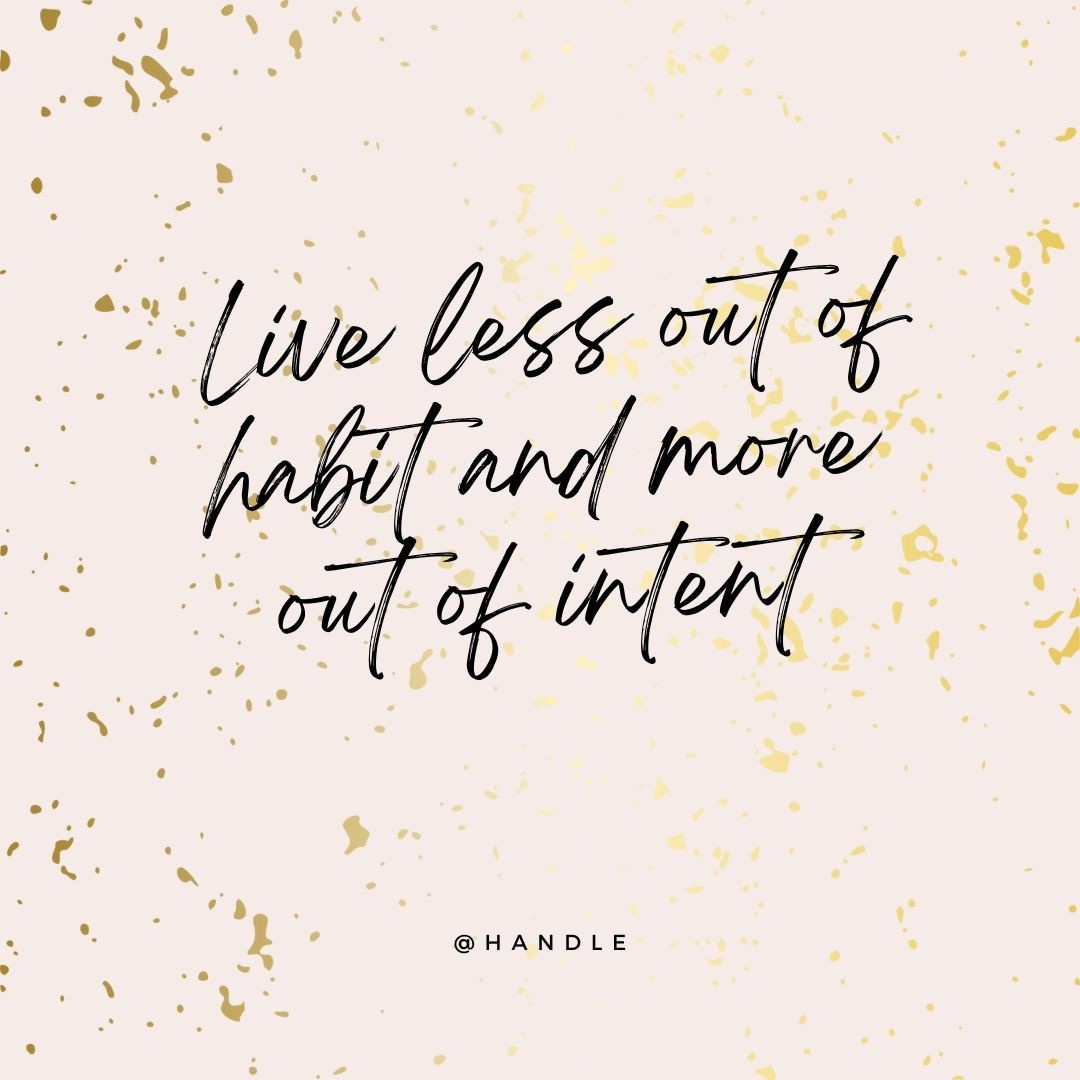 Live less out of
habit and more
out of intent
@HANDLE